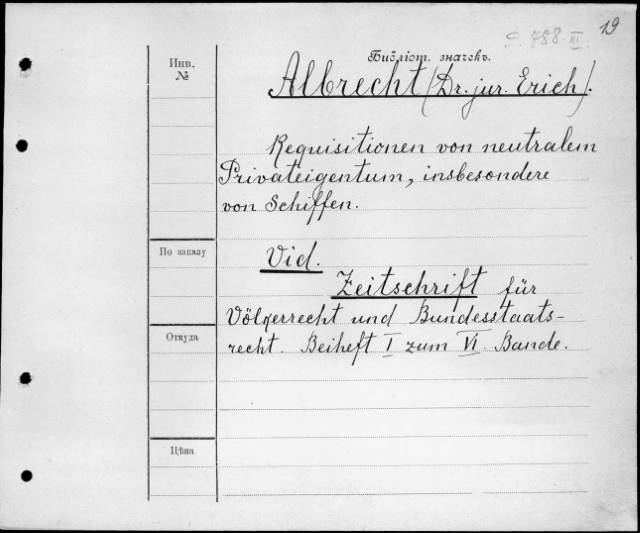 19
Р. 788 III.
Инв.
№
Библіот. значекъ.
Albrecht (Dr. jur. Erich).
Requisitionen von neutralem
Privateigentum, insbesondere
von Schiffen.
По заказу
Vid.
Zeitschrift für
Völkerrecht und Bundesstaats-
recht. Beiheft I zum VI. Bande.
Откуда
Цѣна